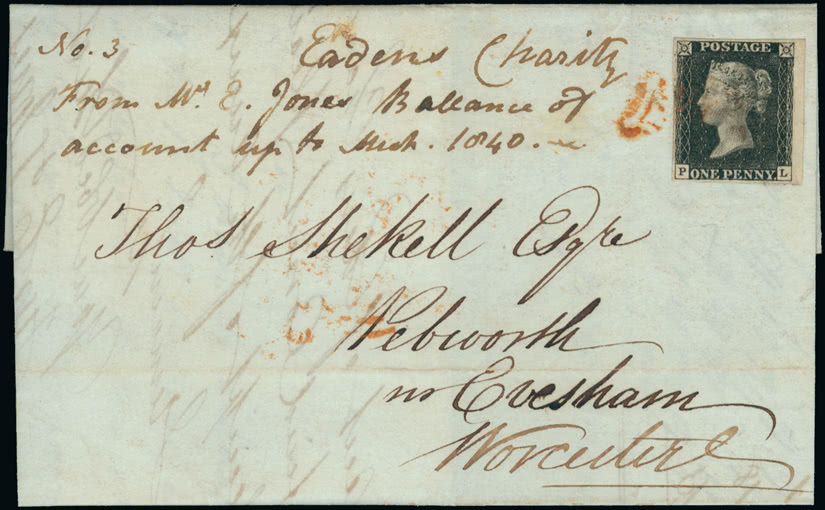 No. 3
Eadens Charity
From Mr. E. Jones Ballance of
account up to Mich. 1840.
POSTAGE
P ONE PENNY L
Thos Shekell Esqre
Pebworth
nr Evesham
Worcester